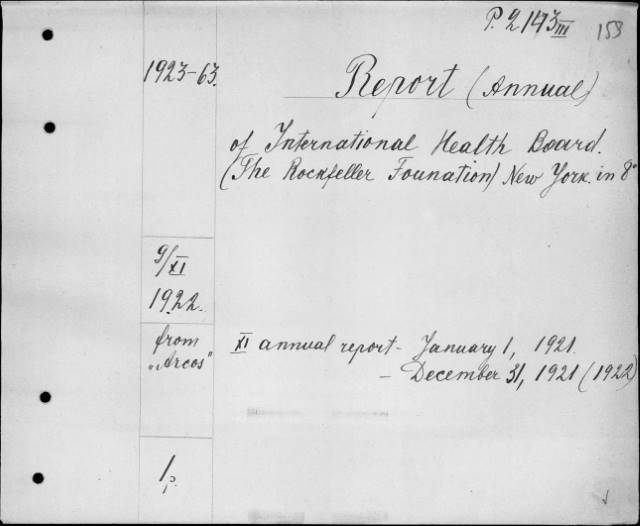 P. 2143 III 158
1923-63.
Report (Annual)
of International Health Board.
(The Rockfeller Founation) New York. in 8°
9/XI
1922.
from
„Arcos"
XI annual report - January 1, 1921.
- December 31, 1921 (1922)
1 p.